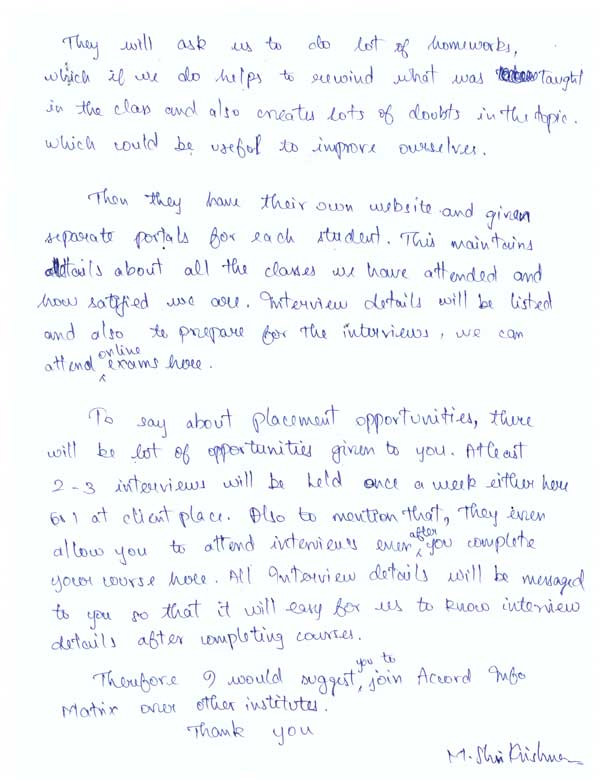 They will ask us to do lot of homeworks,
which if we do helps to rewind what was taught
in the class and also creates lots of doubts in the topic.
which would be useful to improve ourselves.
Then they have their own website and given
separate portals for each student. This maintains
details about all the classes we have attended and
how satified we are. Interview details will be listed
and also to prepare for the interviews, we can
attend online exams here.
To say about placement opportunities, there
will be lot of opportunities given to you. Atleast
2-3 interviews will be held once a week either here
or at client place. Also to mention that, they even
allow you to attend interviews even after you complete
your course here. All Interview details will be messaged
to you so that it will easy for us to know interview
details after completing courses.
Therefore I would suggest, you to join Accord Info
Matrix over other institutes.
Thank you
M. Shri Krishna